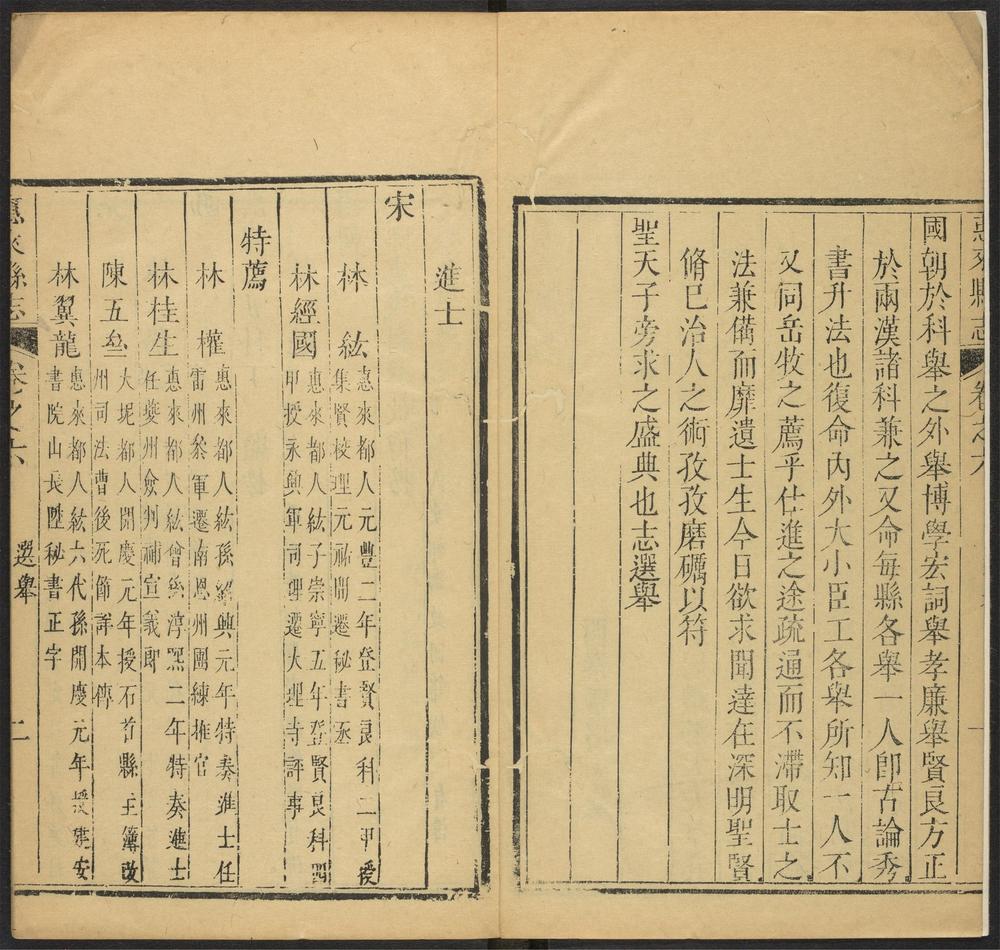 惠來縣志
卷之六
一
國朝於科舉之外舉博學宏詞舉孝廉舉賢良方正
於兩漢諸科兼之又命每縣各舉一人卽古論秀
書升法也復命內外大小臣工各舉所知一人不
又同岳牧之薦乎仕進之途疏通而不滯取士之
法兼備而靡遺士生今日欲求聞達在深明聖賢
脩巳治人之術孜孜磨礪以符
聖天子旁求之盛典也志選舉
進士
宋
林 紘
惠來都人元豐二年登賢良科二甲授
集賢校理元祐間遷秘書丞
林經國
惠來都人紘子崇寧五年登賢良科四
甲授永興軍司理遷大理寺評事
特薦
林 權
惠來都人紘孫紹興元年特奏進士任
雷州叅軍遷南恩州團練推官
林桂生
惠來都人紘曾孫淳熙二年特奏進士
任夔州僉判補宣義郎
陳五叅
大坭都人開慶元年授石首縣主簿改
州司法曹後死節詳本傳
林翼龍
惠來都人紘六代孫開慶元年授建安
書院山長陞秘書正字
惠來縣志
卷之六
選舉
二